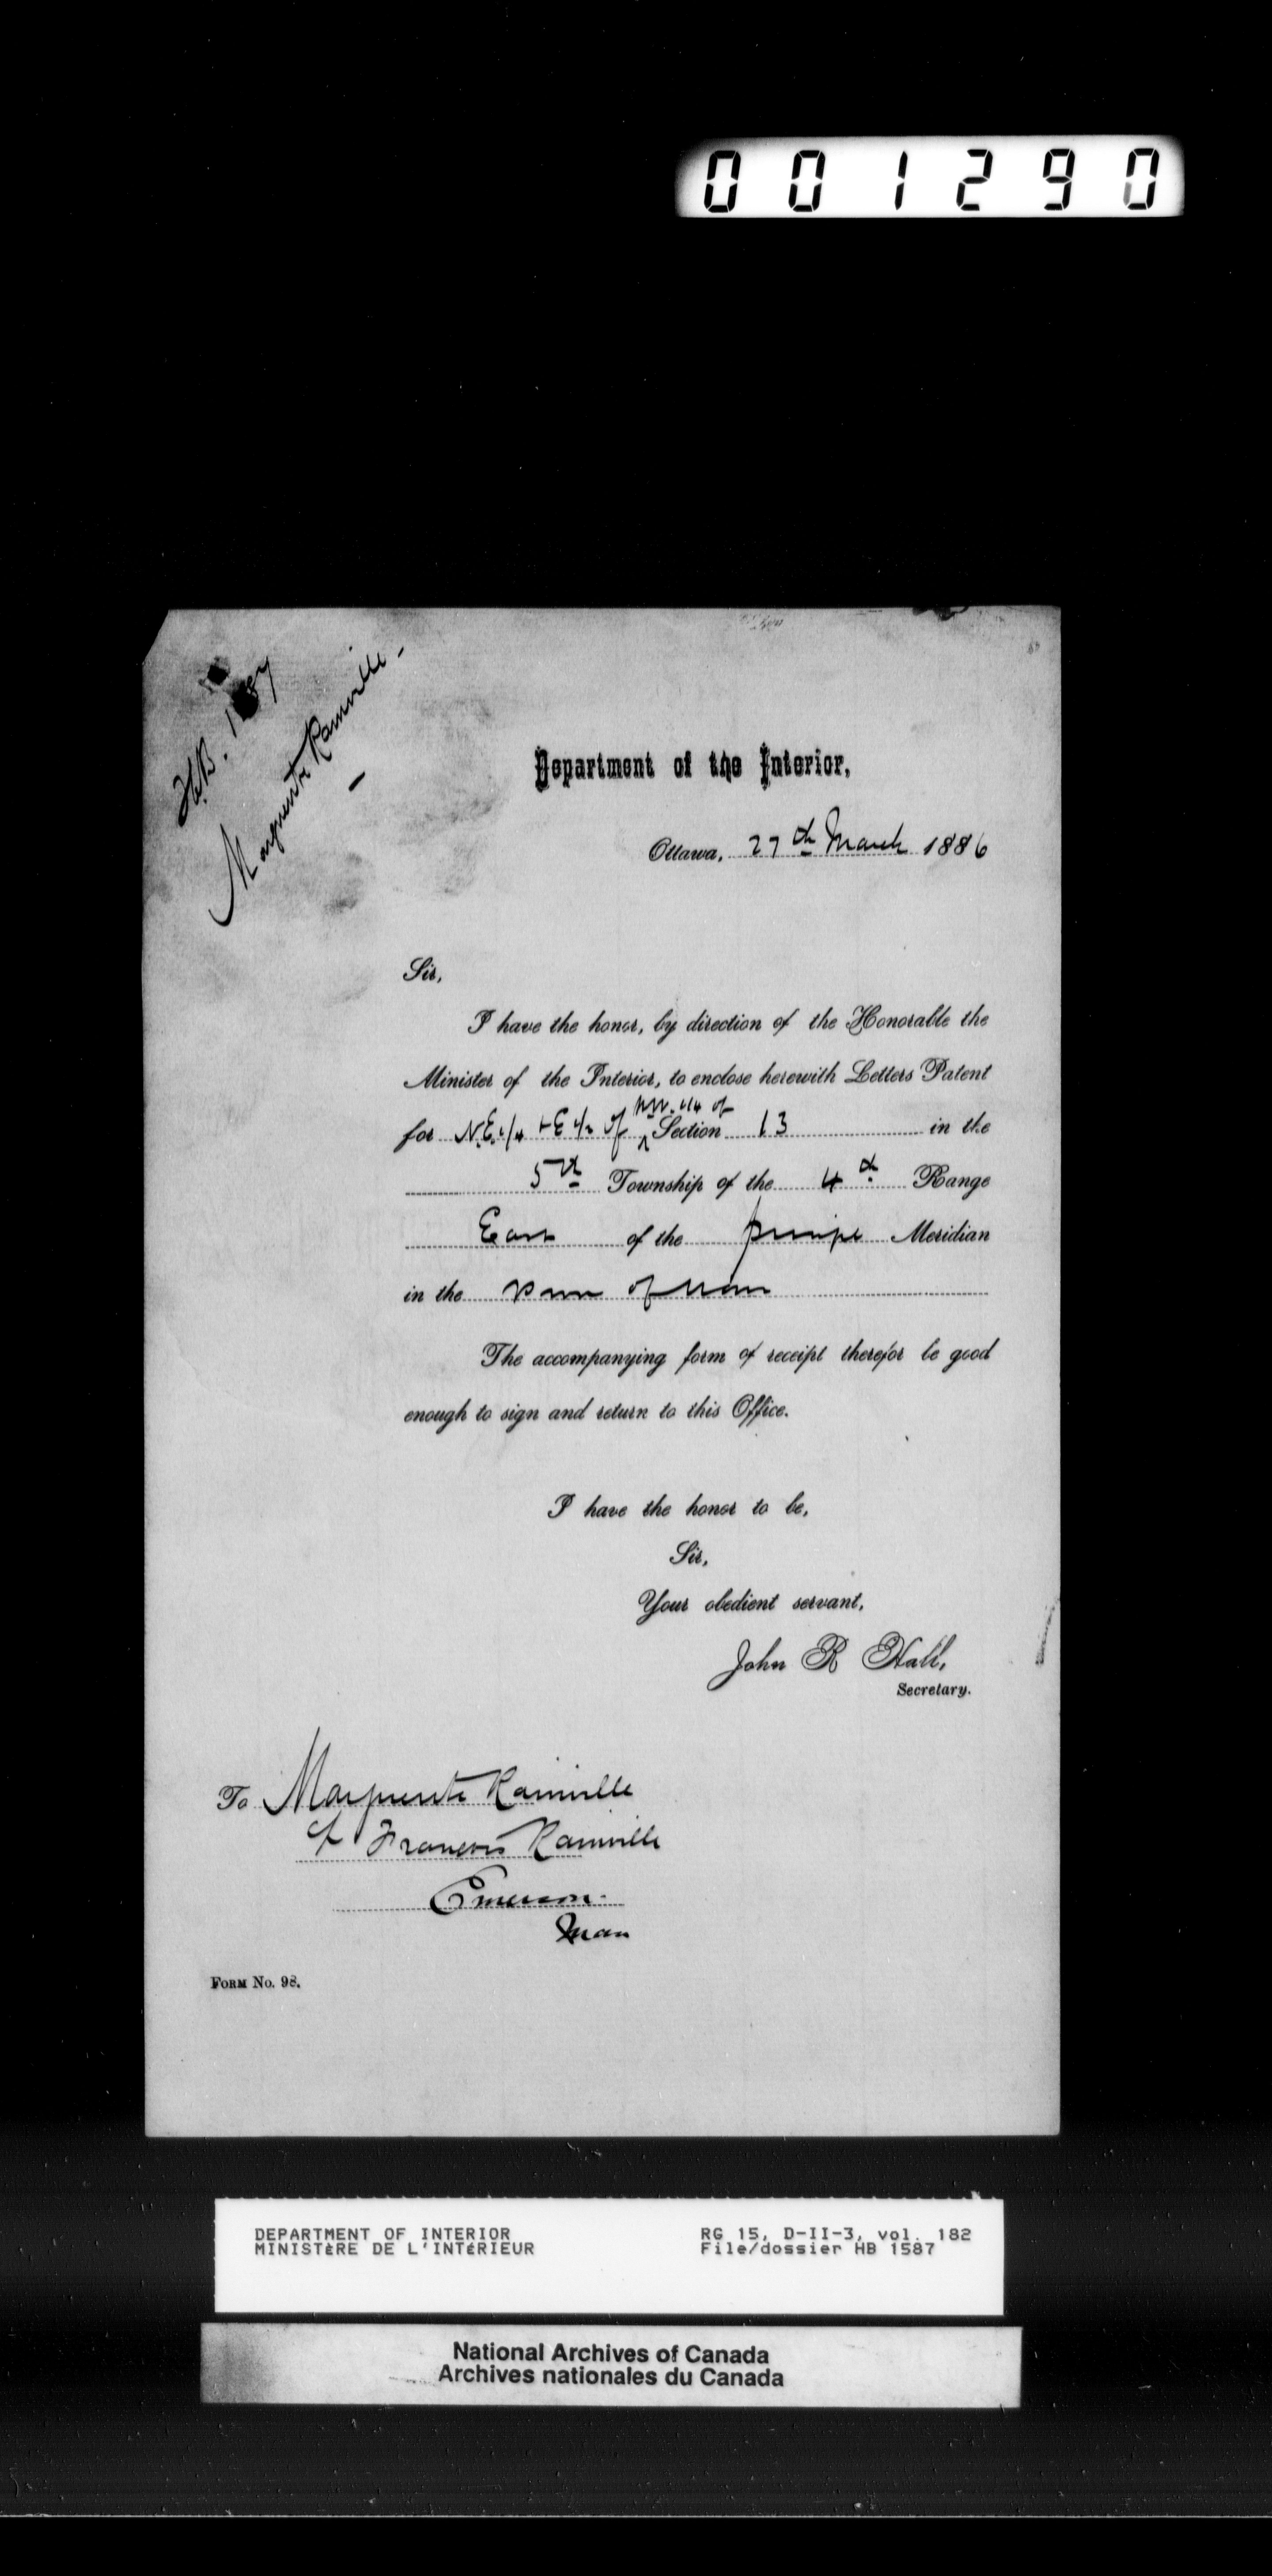 001290
H.B. 1587
Marguerite Rainville -
Department of the Interior,
Ottawa, 27th March 1886
Sir,
I have the honor, by direction of the Honorable the
Minister of the Interior, to enclose herewith Letters Patent
N.W. 1/4 of
for N.E. 1/4 + E 1/2 of Section 13 in the
5th Township of the 4th Range
East of the Meridian
in the of Man
The accompanying form of receipt therefor be good
enough to sign and return to this Office.
I have the honor to be,
Sir,
Your obedient servant,
John R Hall,
Secretary.
To Marguerite Rainville
Francois Rainville
Emerson.
Man
FORM No. 98.
DEPARTMENT OF INTERIOR
MINISTÈRE DE L'INTÉRIEUR
RG 15, D-II-3, vol. 182
File/dossier HB 1587
National Archives of Canada
Archives nationales du Canada